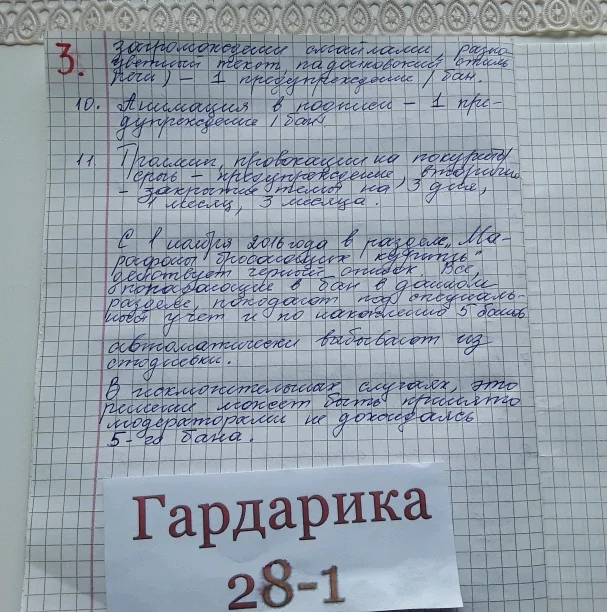 3.
загромождении смайлами, разно-
цветный текст, падонковский стиль
речи) – 1 предупреждение / бан.
10. Анимация в подписи – 1 пре-
дупреждение / бан
11. Троллинг, провокации на покурить/
срыв – предупреждение, вторично
– закрытие темы на 3 дня,
1 месяц, 3 месяца.
С 1 ноября 2016 года в разделе „Ма-
рафоны бросающих курить"
действует черный список. Все,
попадающие в бан в данном
разделе, попадают под специаль-
ный учет и по накоплению 5 банов
автоматически выбывают из
стодневки.
В исключительных случаях, это
решение может быть принято
модераторами не дожидаясь
5-го бана.
Гардарика
28-1